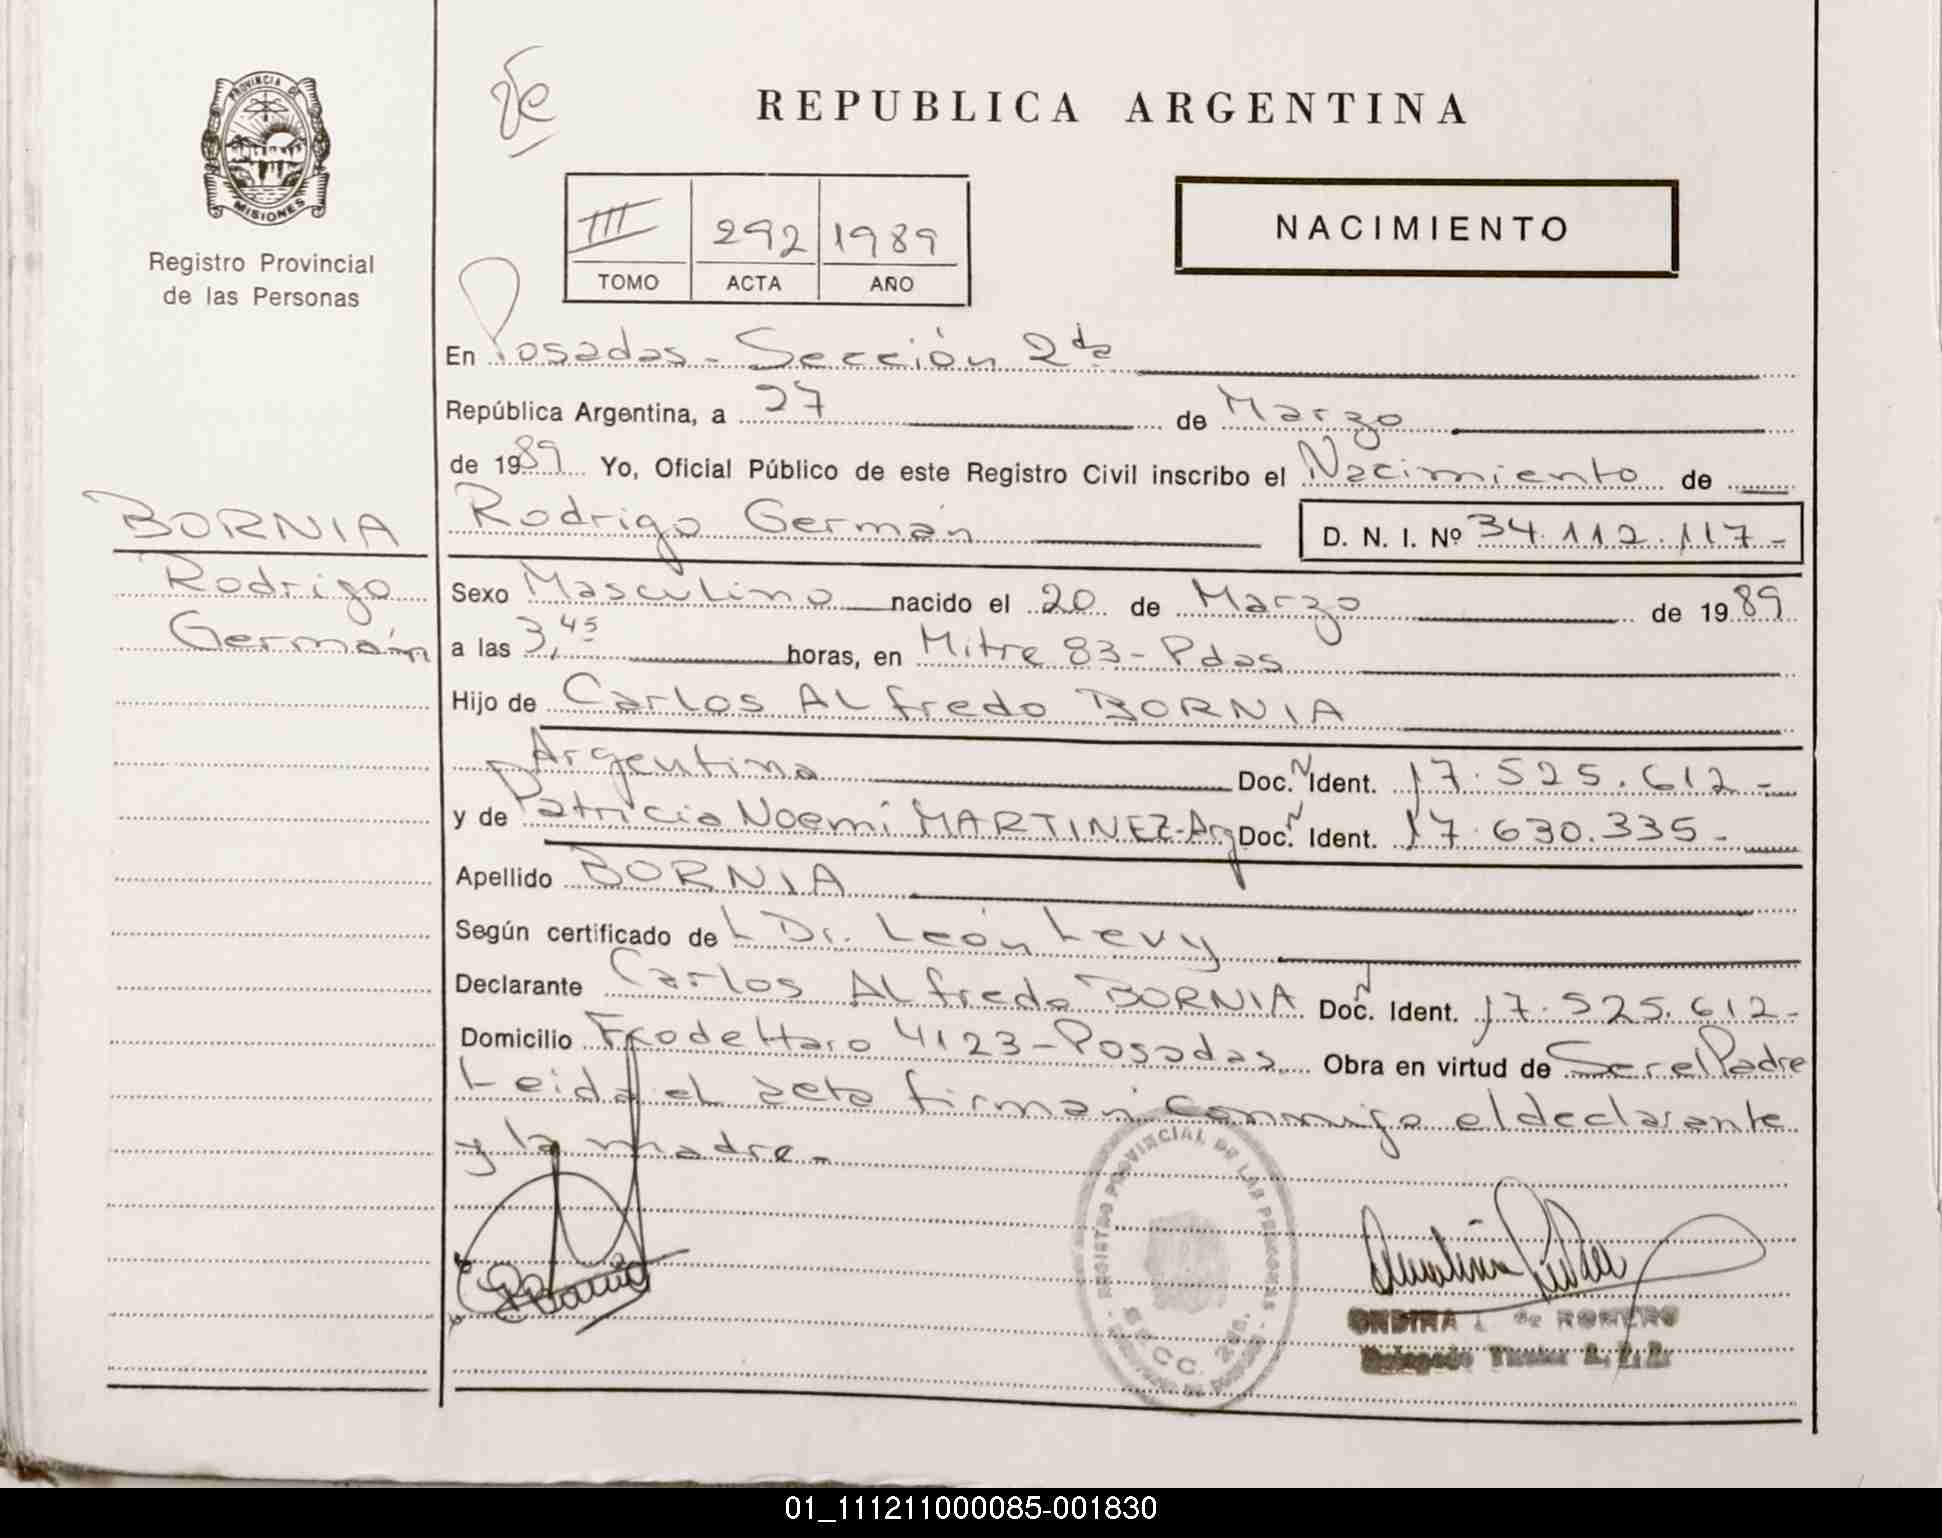 PROVINCIA DE
MISIONES
Registro Provincial
de las Personas
REPUBLICA ARGENTINA
NACIMIENTO
III 292 1989
TOMO ACTA AÑO
En Posadas - Sección 2da
República Argentina, a 27 de Marzo
de 1989 Yo, Oficial Público de este Registro Civil inscribo el Nacimiento de
BORNIA
Rodrigo
Germán
Rodrigo Germán D. N. I. Nº 34.112.117-
Sexo Masculino nacido el 20 de Marzo de 1989
a las 3,45 horas, en Mitre 83 - Pdas
Hijo de Carlos Alfredo BORNIA
Argentina Doc. N Ident. 17.525.612-
y de Patricia Noemí MARTINEZ-Arg Doc. N Ident. 17.630.335-
Apellido BORNIA
Según certificado del Dr. León Levy
Declarante Carlos Alfredo BORNIA Doc. N Ident. 17.525.612-
Domicilio Fco de Haro 4123 - Posadas Obra en virtud de Ser el Padre
Leida el acta firman conmigo el declarante
y la madre-
REGISTRO PROVINCIAL DE LAS PERSONAS
SECC. 2da.
ONDINA de ROMERO
01_111211000085-001830